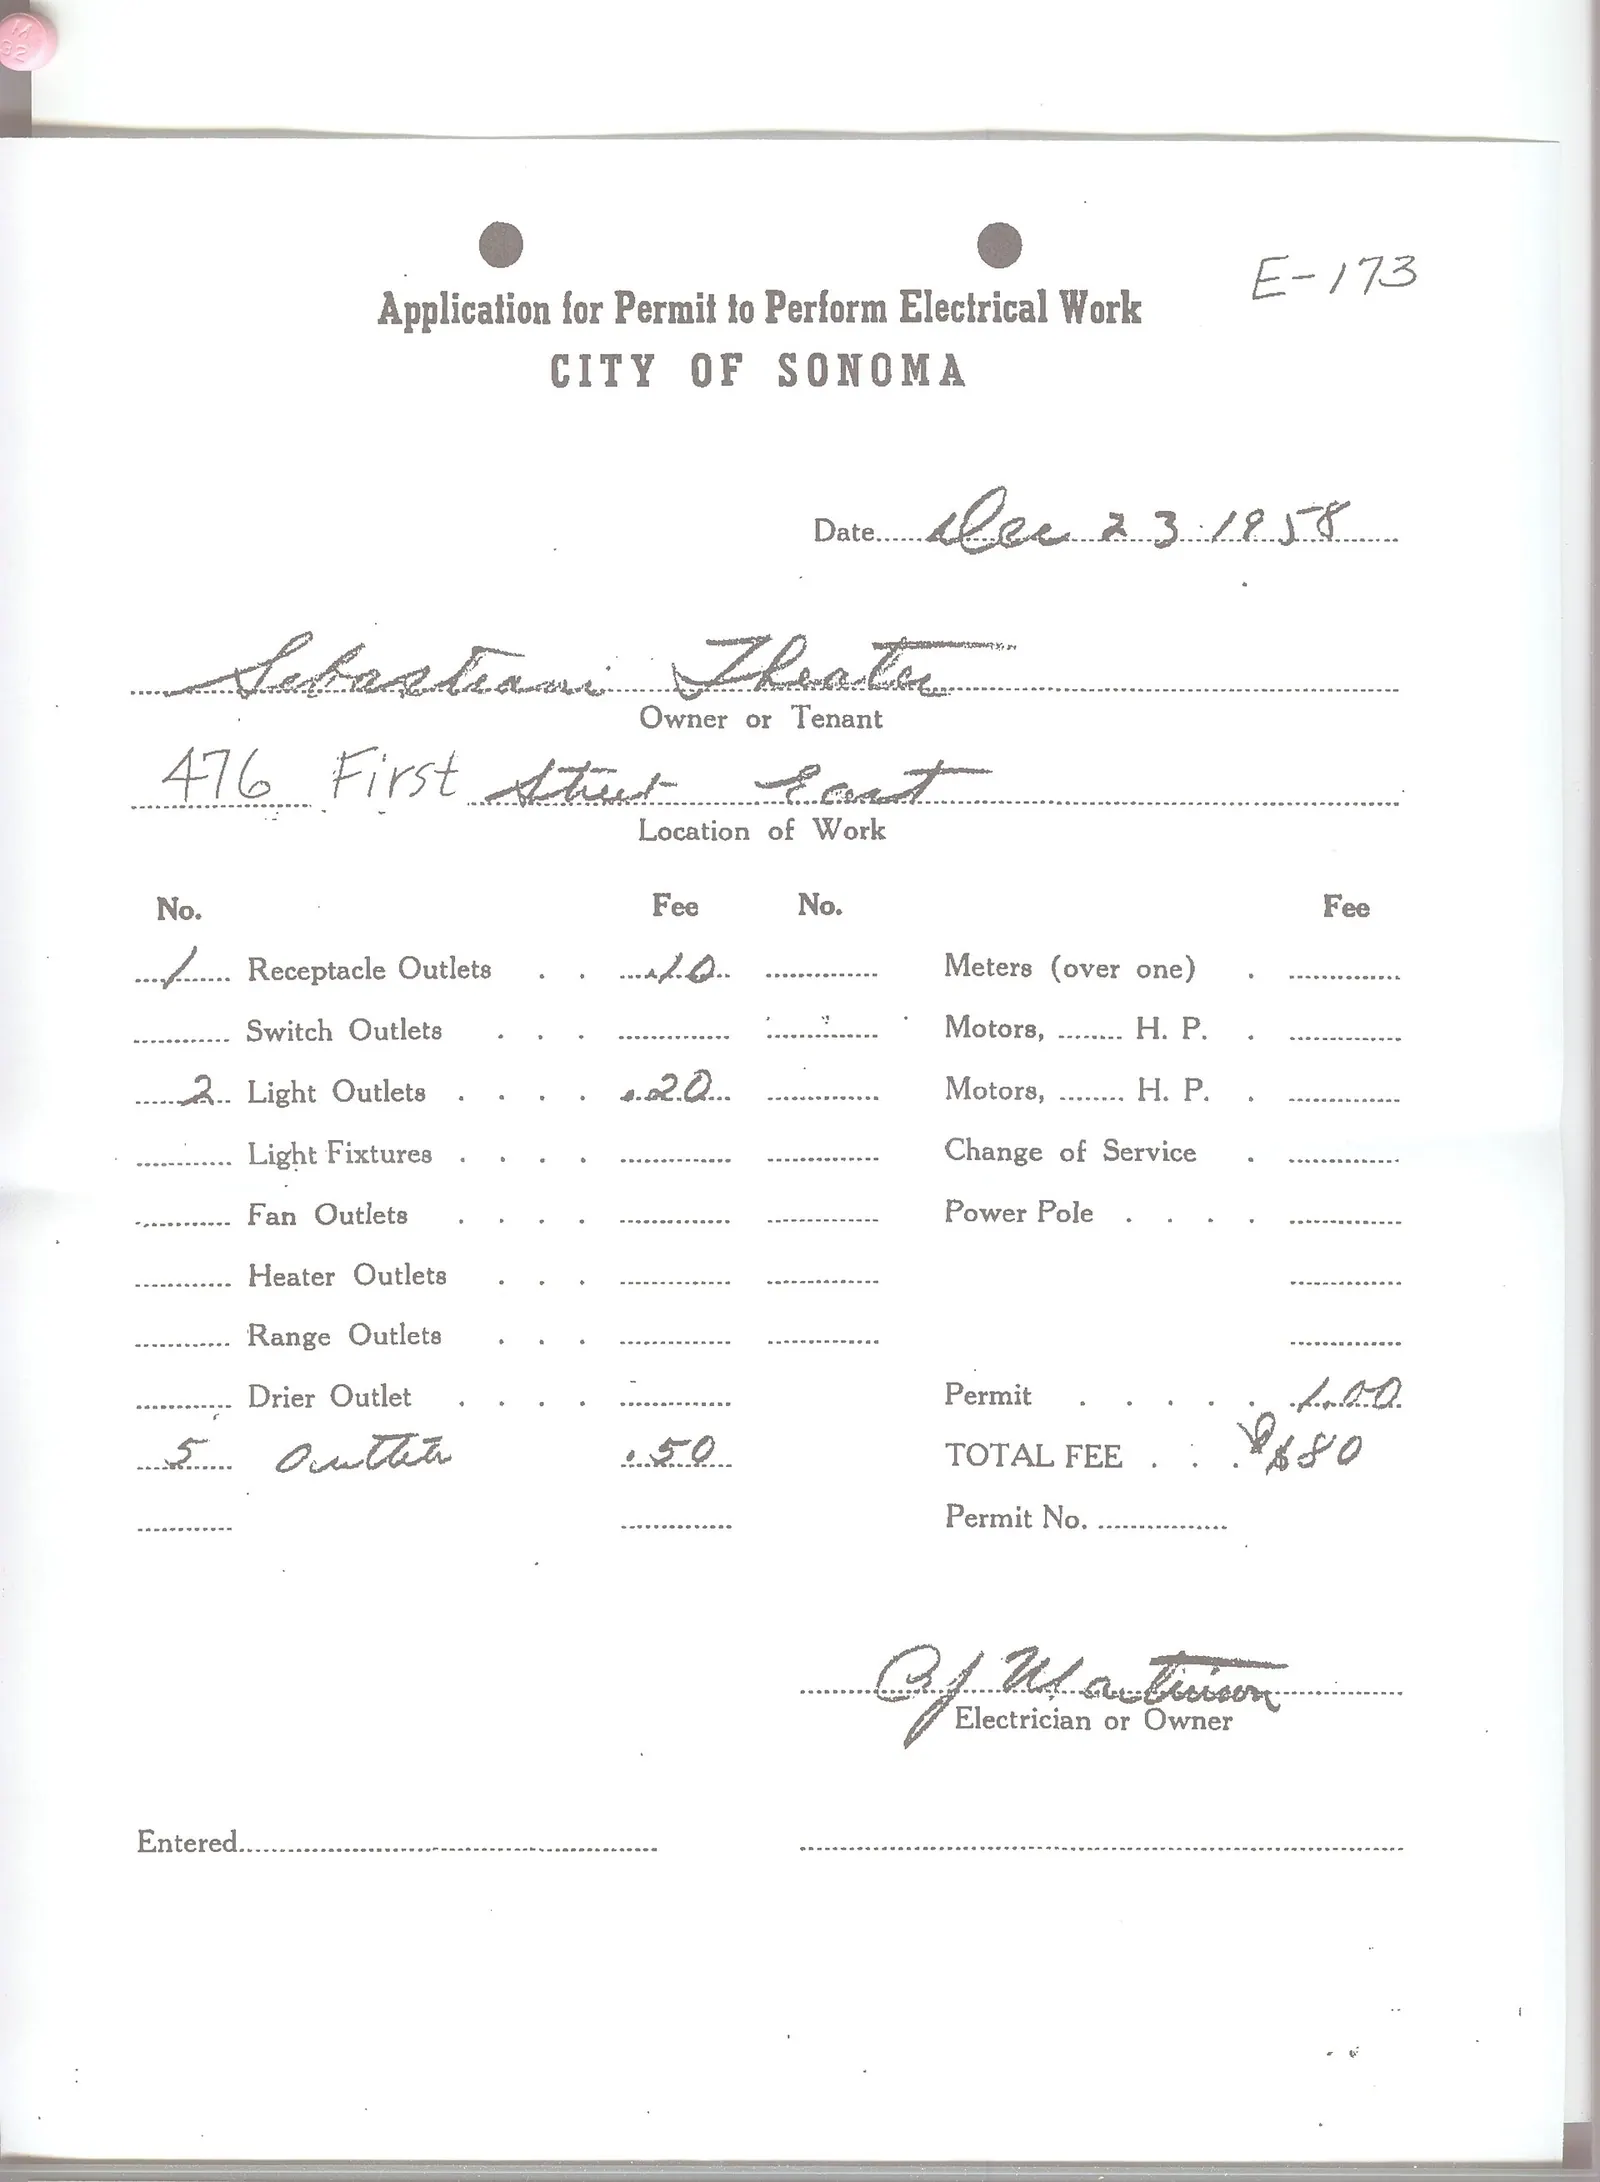 IA
32
E-173
Application for Permit to Perform Electrical Work
CITY OF SONOMA
Date Dec 23 1958
Sebastiani Theater
Owner or Tenant
476 First Street East
Location of Work
No. Fee No. Fee
1 Receptacle Outlets . . .10 Meters (over one) .
Switch Outlets . . . Motors, H. P. .
2 Light Outlets . . . . .20 Motors, H. P. .
Light Fixtures . . . . Change of Service .
Fan Outlets . . . . Power Pole . . . .
Heater Outlets . . .
Range Outlets . . .
Drier Outlet . . . . Permit . . . . . 1.00
5 Outlets .50 TOTAL FEE . . . $80
Permit No.
Martinson
Electrician or Owner
Entered